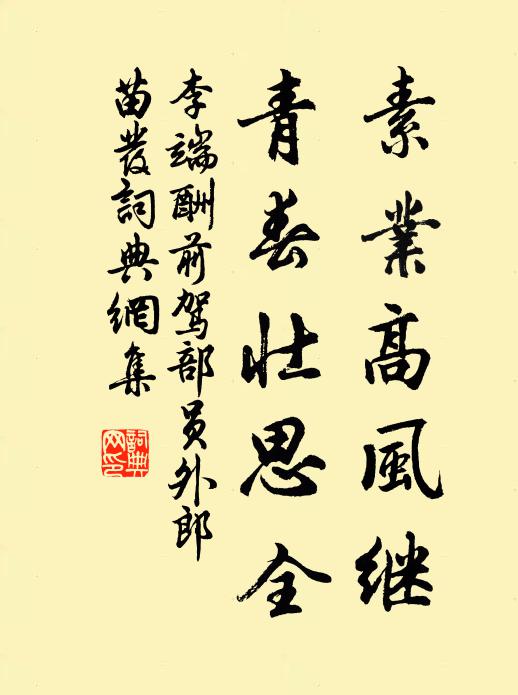 素業高风继
青春壮思全
李端酬前駕部员外郎
苗發詞典網集
詞典
网印